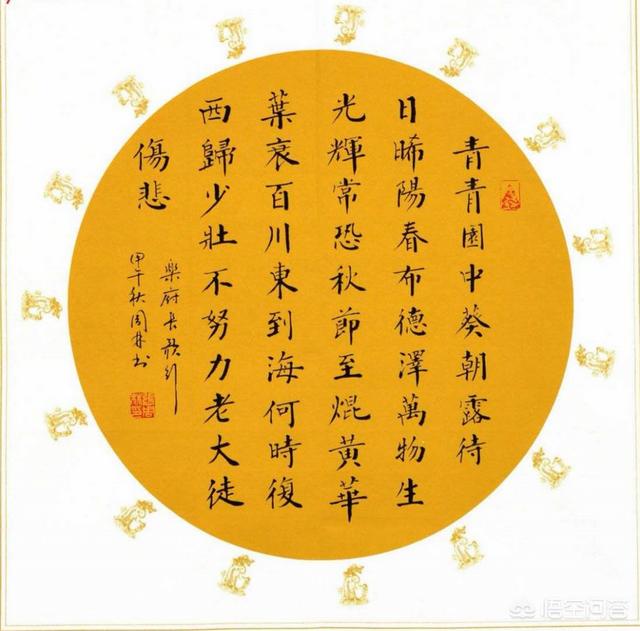 青青園中葵朝露待
日晞陽春布德澤萬物生
光輝常恐秋節至焜黃華
葉衰百川東到海何時復
西歸少壯不努力老大徒
傷悲
樂府長歌行
甲午秋周林书
悟空问答